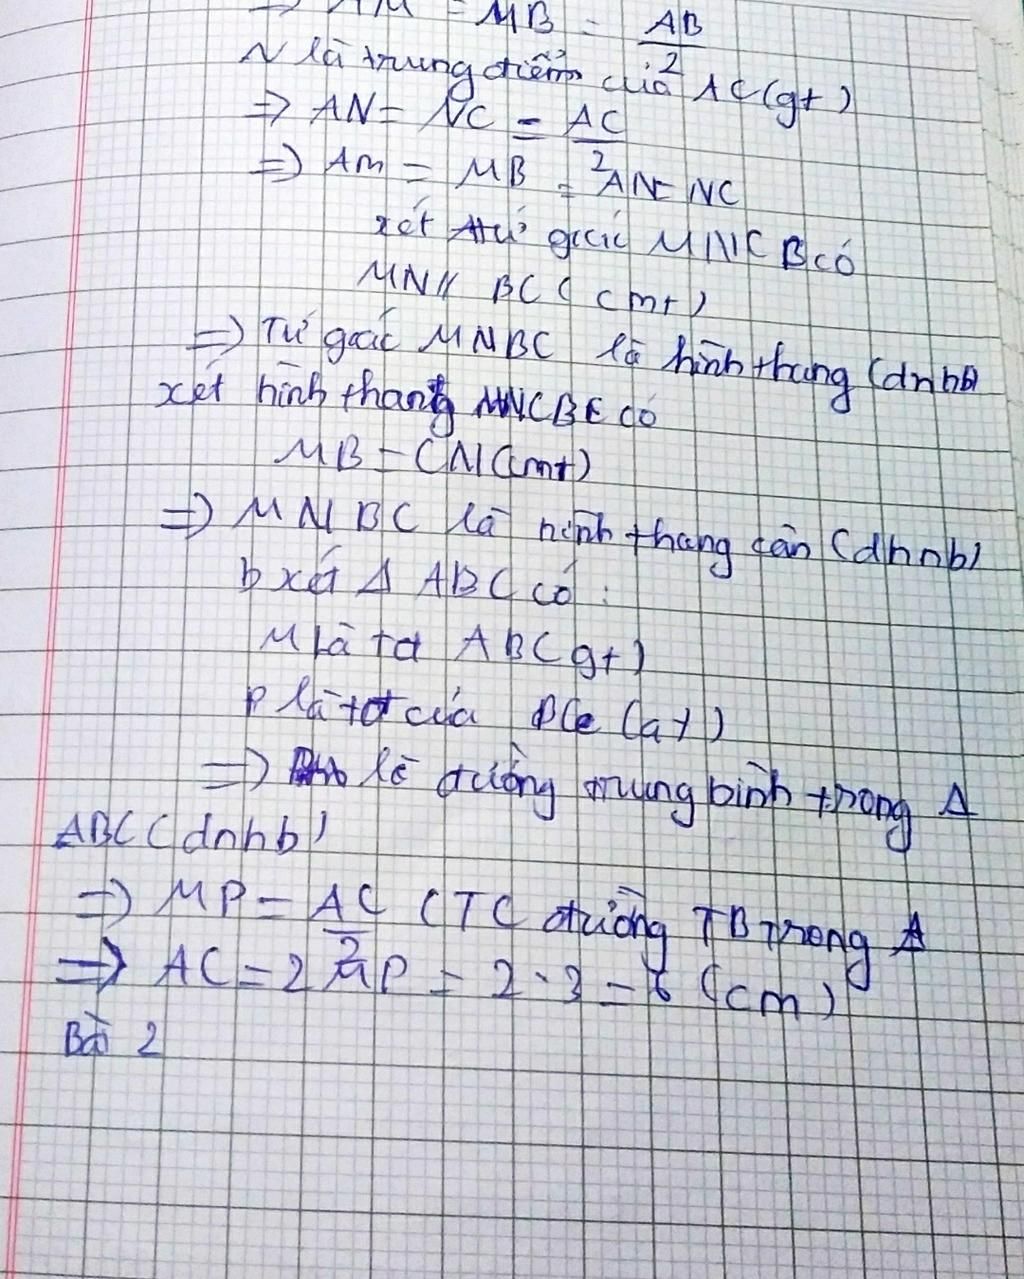 ⇒ AM = MB = AB/2
N là trung điểm của AC (gt)
⇒ AN = NC = AC/2
⇒ AM = MB = AN = NC
xét tứ giác MNCB có
MN // BC (cmt)
⇒ Tứ giác MNBC là hình thang (dhnb)
xét hình thang MNCB có
MB = CN (cmt)
⇒ MNBC là hình thang cân (dhnb)
b xét Δ ABC có :
M là tđ AB (gt)
P là tđ của (gt)
⇒ là đường trung bình trong Δ
ABC (dhhb)
⇒ MP = AC/2 (TC đường TB Trong Δ
⇒ AC = 2 MP = 2 . 3 = 6 (cm)
Bài 2